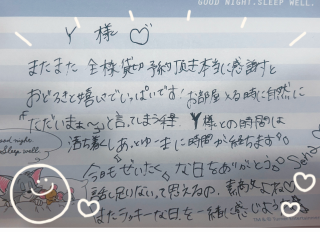 GOOD NIGHT, SLEEP WELL.
Y 様 ♡
またまた 全様貸切予約頂き本当に感謝と
おどろきと嬉しいでいっぱいです! お部屋入る時に自然に
「ただいまぁ〜」と言ってしまう程 Y様との時間は
落ち着く あっとゆーまに時間が経ちます
今日もぜいたくな日をありがとう
話し足りないって思えるの、素敵よね♡
またラッキーな日を一緒に感じよう
good night
Sleep well.